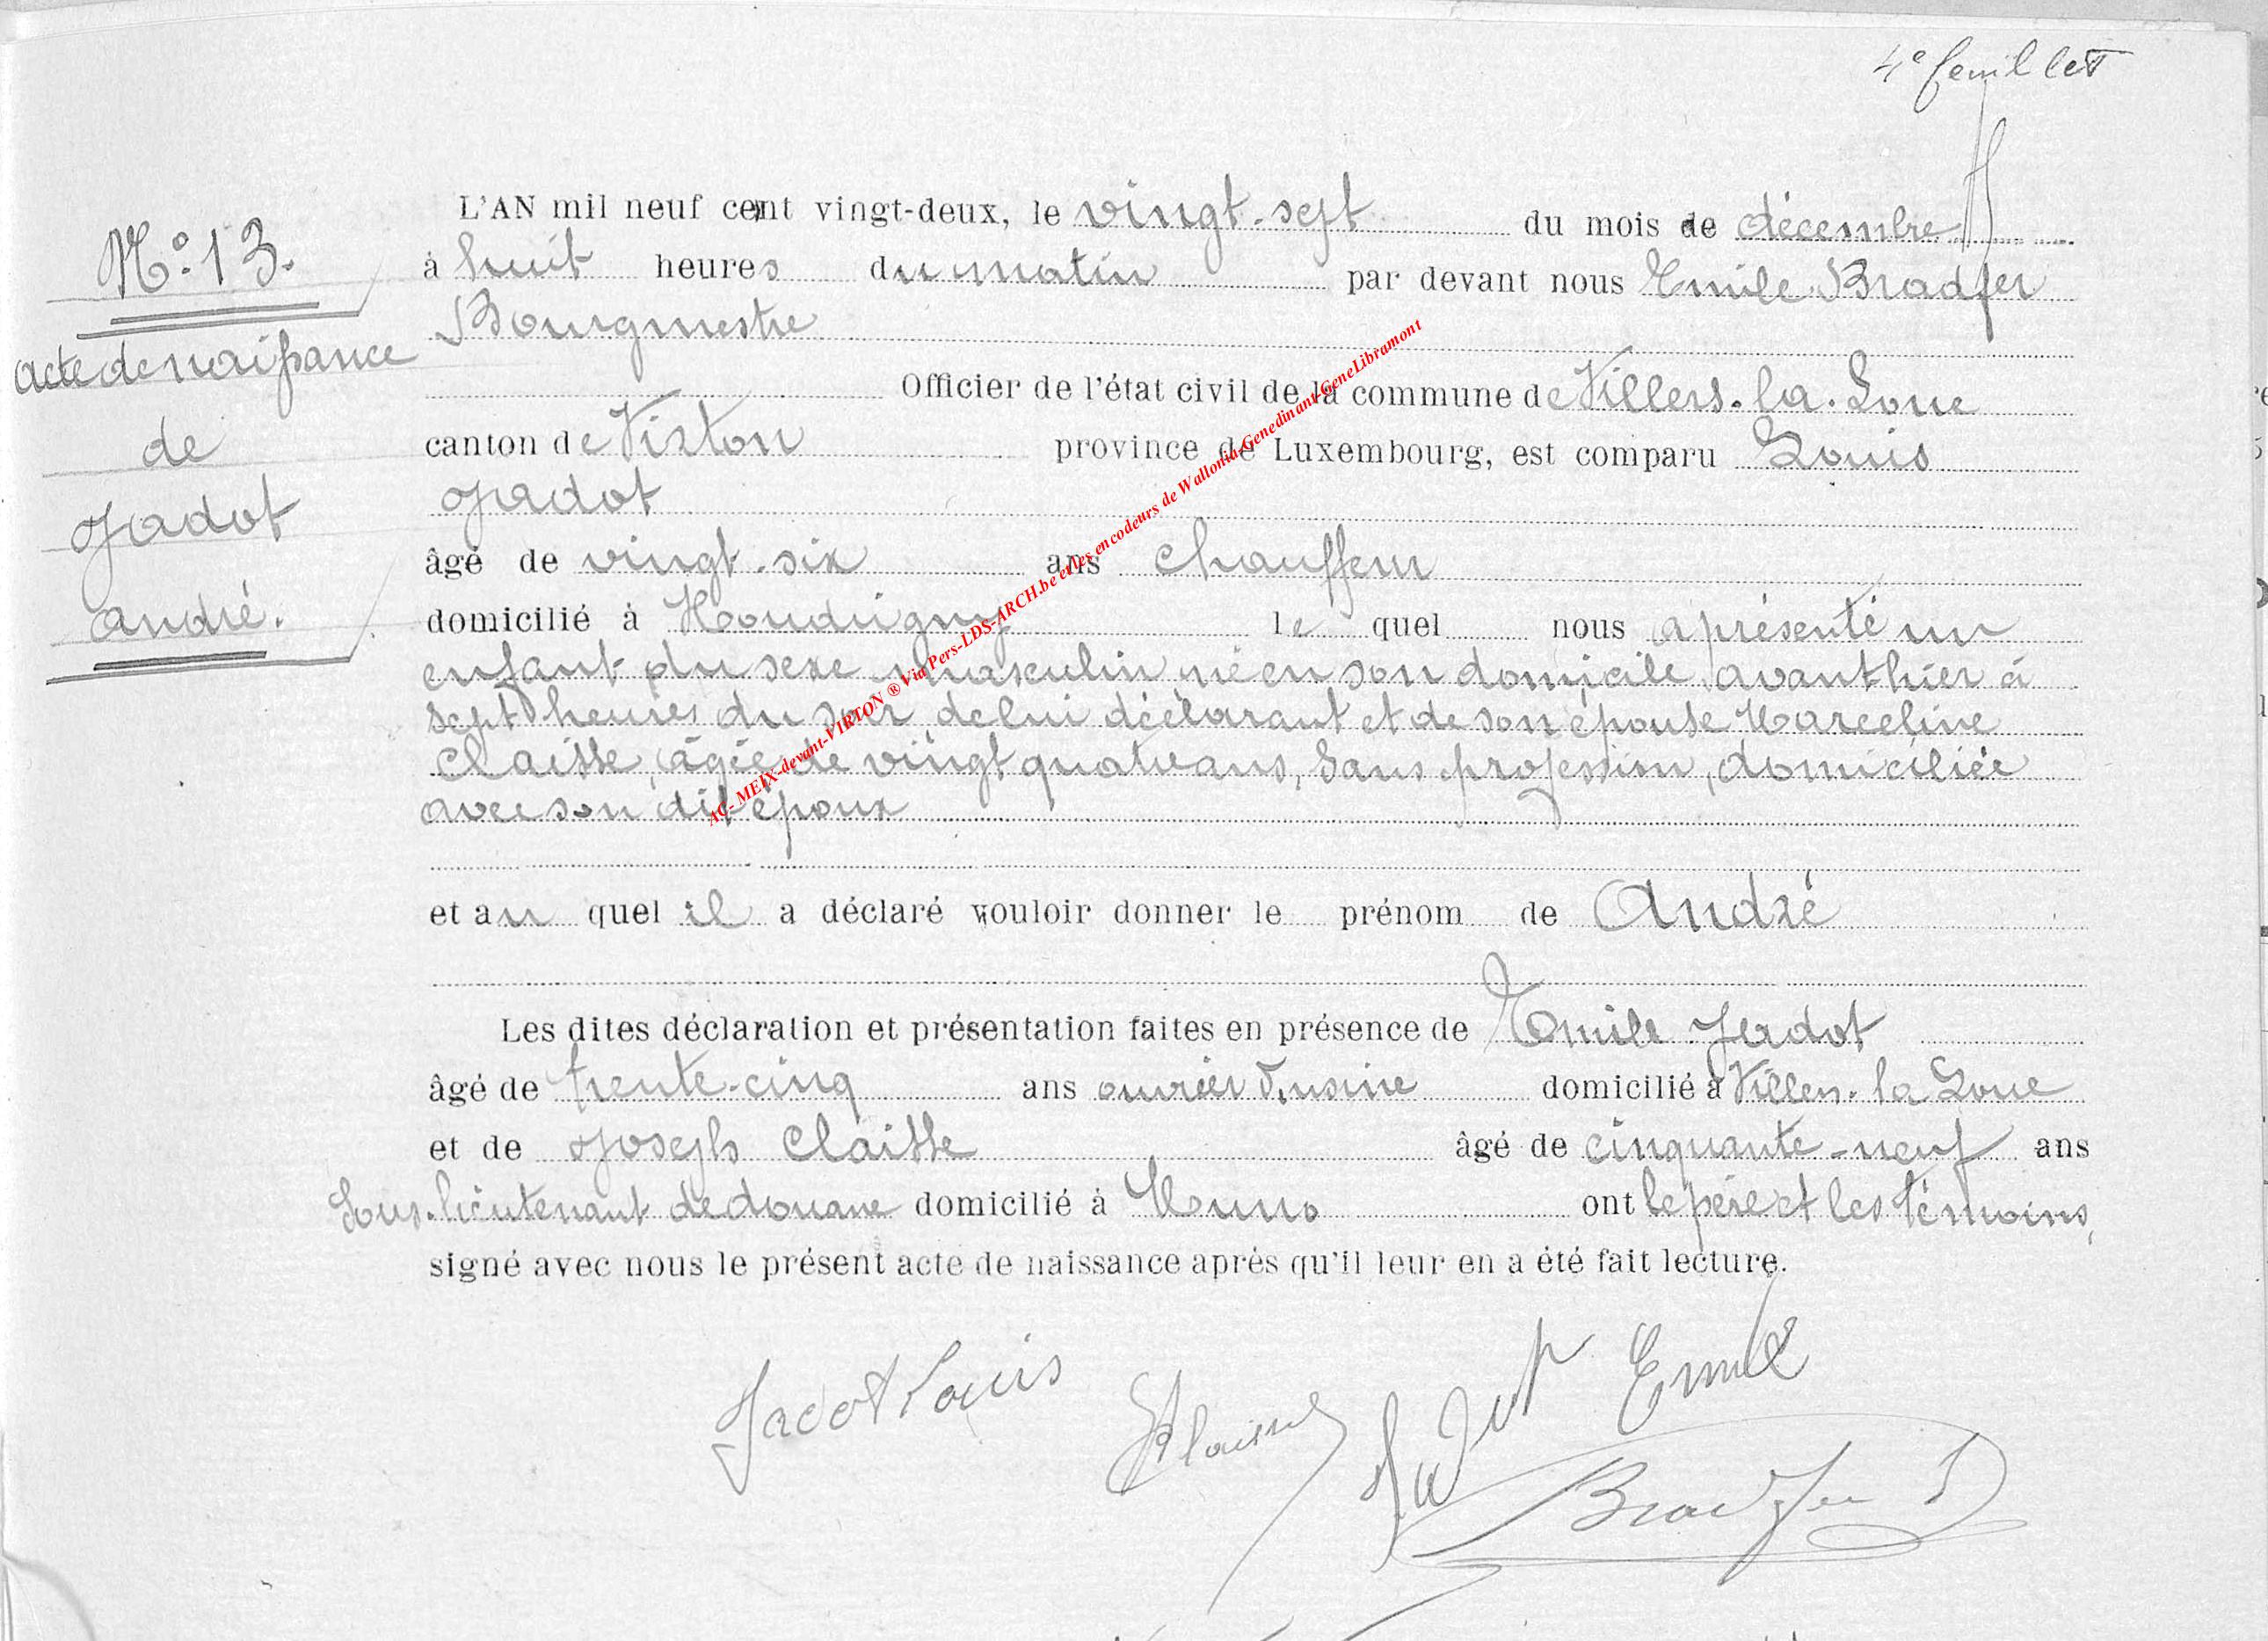 4e feuillet
N° 13.
acte de naissance
de
Jadot
André.
L'AN mil neuf cent vingt-deux, le vingt-sept du mois de décembre
à huit heures du matin par devant nous Emile Bradfer
Bourgmestre
Officier de l'état civil de la commune de Villers-la-Loue
canton de Virton province de Luxembourg, est comparu Louis
Jadot
âgé de vingt-six ans chauffeur
domicilié à Houdrigny le quel nous a présenté un
enfant du sexe masculin né en son domicile avant hier à
sept heures du soir de lui déclarant et de son épouse Marceline
Claisse, âgée de vingt quatre ans, sans profession, domiciliée
avec son dit époux
et au quel il a déclaré vouloir donner le prénom de André
Les dites déclaration et présentation faites en présence de Emile Jadot
âgé de trente-cinq ans ouvrier d'usine domicilié à Villers-la-Loue
et de Joseph Claisse âgé de cinquante-neuf ans
Sous-lieutenant de douane domicilié à Muno ont le père et les témoins,
signé avec nous le présent acte de naissance après qu'il leur en a été fait lecture.
Jadot Louis
JClaisse
Jadot Emile
Bradfer
AC- MEIX-devant-VIRTON ® Via Pers-LDS-ARCH.be et les encodeurs de Wallonia-Genedinant-GeneLibramont